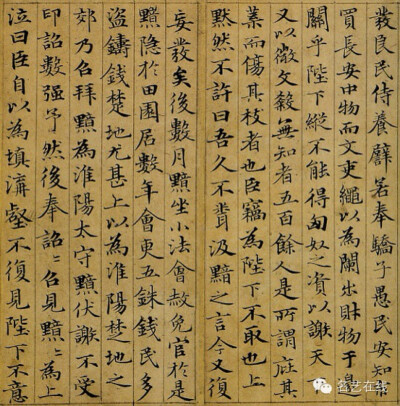 發良民侍養譬若奉驕子愚民安知市
買長安中物而文吏繩以為闌出財物于邊
關乎陛下縱不能得匈奴之資以謝天下
又以微文殺無知者五百餘人是所謂庇其
葉而傷其枝者也臣竊為陛下不取也上
黙然不許曰吾久不聞汲黯之言今又復
妄發矣後數月黯坐小法會赦免官於是
黯隱於田園居數年會更五銖錢民多
盜鑄錢楚地尤甚上以為淮陽楚地之
郊乃召拜黯為淮陽太守黯伏謝不受
印詔數强予然後奉詔〻召見黯〻為上
泣曰臣自以為填溝壑不復見陛下不意
名艺在线